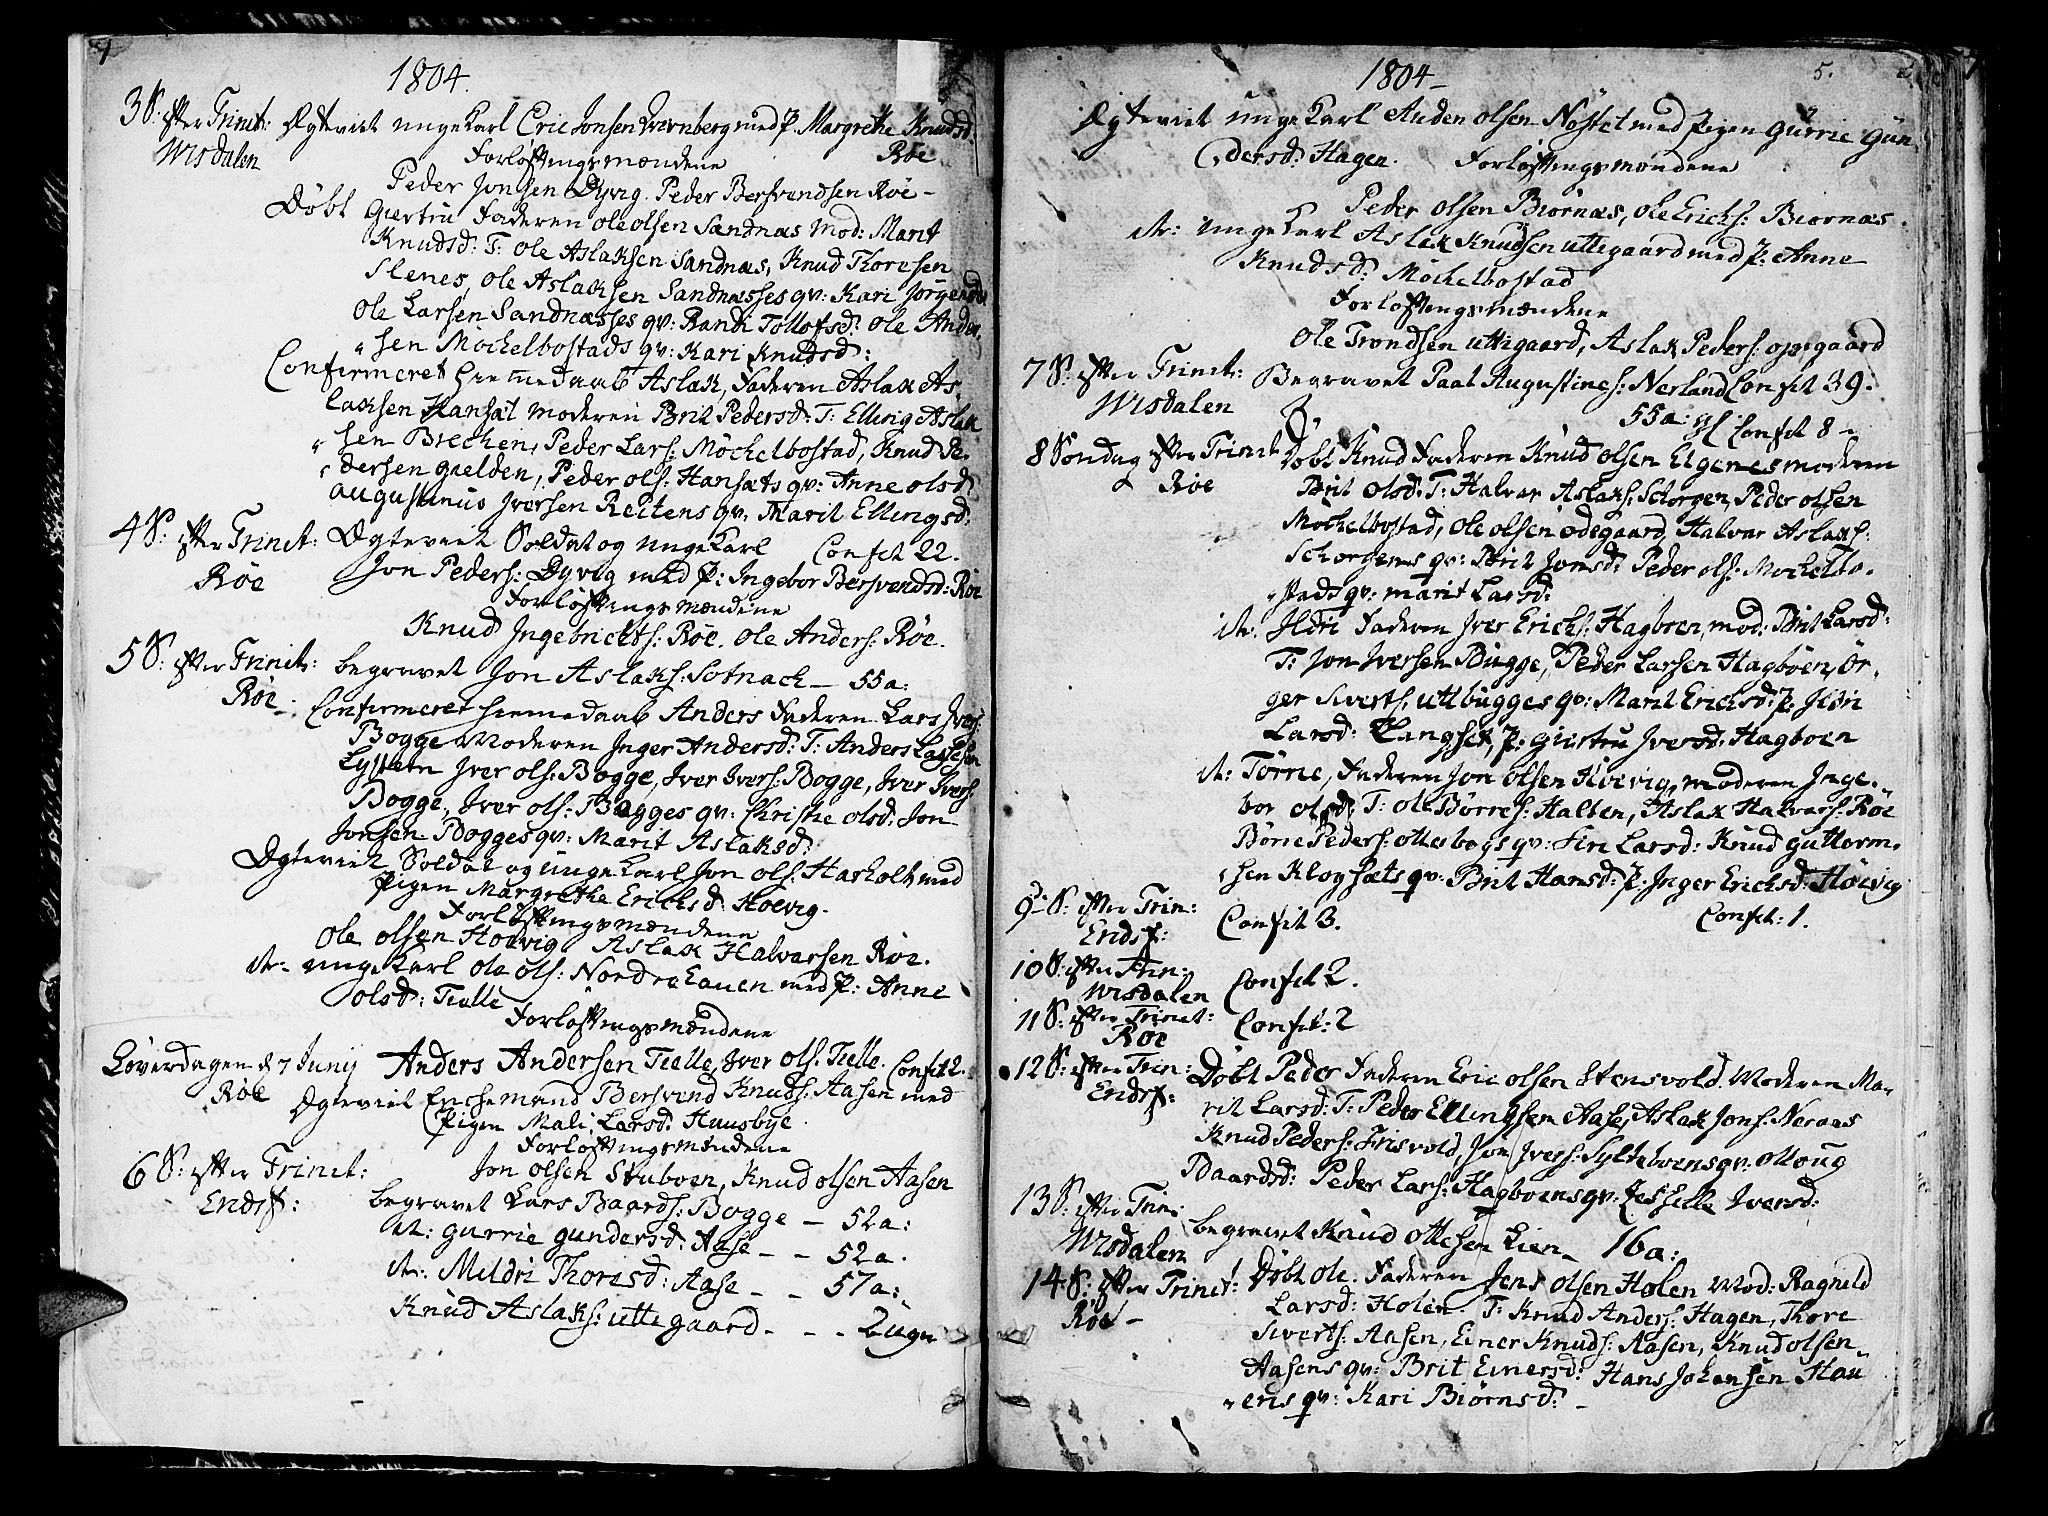 1804.
3 S: efter Trinit: Ægteviet unge Karl Eric Jonsen med P. Margrethe Knudsd:
Wisdalen Forlofteingsmændene Röe
Peder Jonsen Dyvig. Peder Bersvendsen Röe -
Döbt Giertru Faderen ole olsen Sandnæs Mod: Marit
Knudsd: T: ole Aslaksen Sandnæs, Knud Thoresen
Slenes, ole Aslaksen Sandnæsses qv: Kari Jörgensd:
Ole Larsen Sandnæsses qv: Randi Tollofsd: Ole Ander,
"sen Möckelbostads qv: Kari Knudsd:
Confirmeret hiemmedaab Aslak, Faderen Aslak As,
laksen Hansæt moderen Brit Pedersd: T: Elling Aslak
"sen Brechen, Peder Lars: Möchelbostad, Knud Pe,
"dersen gaelden, Peder ols: Hansæts qv: Anne olsd:
augustinus Iversen Reitens qv: Marit Ellingsd:
4 S: efter Trinit: Ægteviet Soldat og unge Karl Confit 22.
Röe Jon Peders: Dyvig med P: Ingebor Bersvendsd: Röe
Forlofteingsmændene
Knud Ingebrichts: Röe. Ole Anders: Röe.
5 S: efter Trinit: begravet Jon Aslaks: Sotnach - 55 a:
Röe Confirmeret hiemmedaab Anders Faderen Lars Ivers:
Bogge Moderen Inger Andersd: T: Anders Lassesen
Iver ols: Bogge, Iver Ivers: Bogge, Iver Ivers:
Bogge, Iver ols: Bogges qv: Kristie olsd: Jon
Jonsen Bogges qv: Marit Aslaksd:
Ægteviet Soldat og unge Karl Jon ols: Hasholt med
Pigen Margrethe Ericksd: Hoevig.
Forlofteingsmændene
Ole olsen Hoevig Aslak Halvarsen Röe.
it: unge Karl ole ols: Nordrehauen med P: Anne
olsd: Tielle
Forlofteingsmændene
Löverdagen d 7 Junij Anders Andersen Tielle, Iver ols: Tielle. Confit 2.
Röe Ægteviet Enchemand Bersvend Knuds: Aasen med
Pigen Mali Larsd: Huusbye
Forlofteingsmændene
6 S: efter Trinit: Jon olsen Stuboen, Knud olsen Aasen
Endsf: begravet Lars Baards: Bogge - 52 a:
it: gurrie gundersd: Aase - - 52 a.
it: Mildri Thoresd: Aase - - 57 a:
Knud Aslaks: uttegaard - - - 2 uger
1804 - 5.
Ægteviet unge Karl Anden olsen Nöstet med Pigen Gurrie Gun
dersd: Hagen. Forlofteingsmændene
Peder olsen Biörnæs, ole Erichs: Biornæs.
it: unge Karl Aslak Knudsen uttigaard med P: Anne
Knudsd: Möchelbostad
Forlofteingsmændene
Ole Trondsen uttigaard, Aslak Peders: opgaard
7 S: efter Trinit: Begravet Paal Augustines: Nerland Confit 39.
Wisdalen 55 a: Confit 8 -
8 Söndag efter Trinit Döbt Knud Faderen Knud olsen Elgenes moderen
Röe Brit olsd: T: Halvar Aslaks: Schorgen, Peder olsen
Möchelbostad, ole olsen ödegaard, Halvar Aslaks:
Schorgens qv: Brit Jonsd: Peder ols: Mochelbo,
"stads qv: marit Larsd:
it: Ildri Faderen Iver Erichs: Hagboen, mod: Brit Larsd:
T: Jon Iversen Bugge, Peder Larsen Hagböen, Ör,
ger Siverts: uttbugges qv: Marit Ericksd: P. Ildri
Larsd: Langset, P: giertru Iversd: Hagboen
it: Törrie, Faderen Jon olsen Hoevig, moderen Inge,
bor olsd: T: ole Börres: Halten, Aslak Halvars: Röe
Börre Peders: ottesbogs qv: Siri Larsd: Knud guttorm,
"sen Klogsæts qv: Brit Hansd: P. Inger Ericksd: Höevig
9 S: efter Trin: Confit 3. Confit: 1.
Endsf:
10 S: efter Trin: Confit 2.
Wisdalen
11 S: efter Trinit: Confit: 2
Röe
12 S: efter Trin: Döbt Peder Faderen Eric olsen Stensvold. Moderen Ma,
Endsf: rit Larsd: T: Peder Ellingsen Aase, Aslak Jons: Neraas
Knud Peders: Frisvold, Jon Ivers: Sylteboens qv: Maug
Baardsd: Peder Lars: Hagboens qv: Iversd:
13 S: efter Trin: begravet Knud ottesen Lien - 16 a:
Wisdalen
14 S: efter Trinit: Döbt ole. Faderen Jens olsen Holen Mod: Ragnild
Röe - Larsd: Holen. T: Knud Anders: Hagen, Thore
Siverts: Aasen, Einer Knuds: Aasen, Knud olsen
Aasens qv: Brit Einersd: Hans Johansen Hau
"ens qv: Kari Biörnsd: -